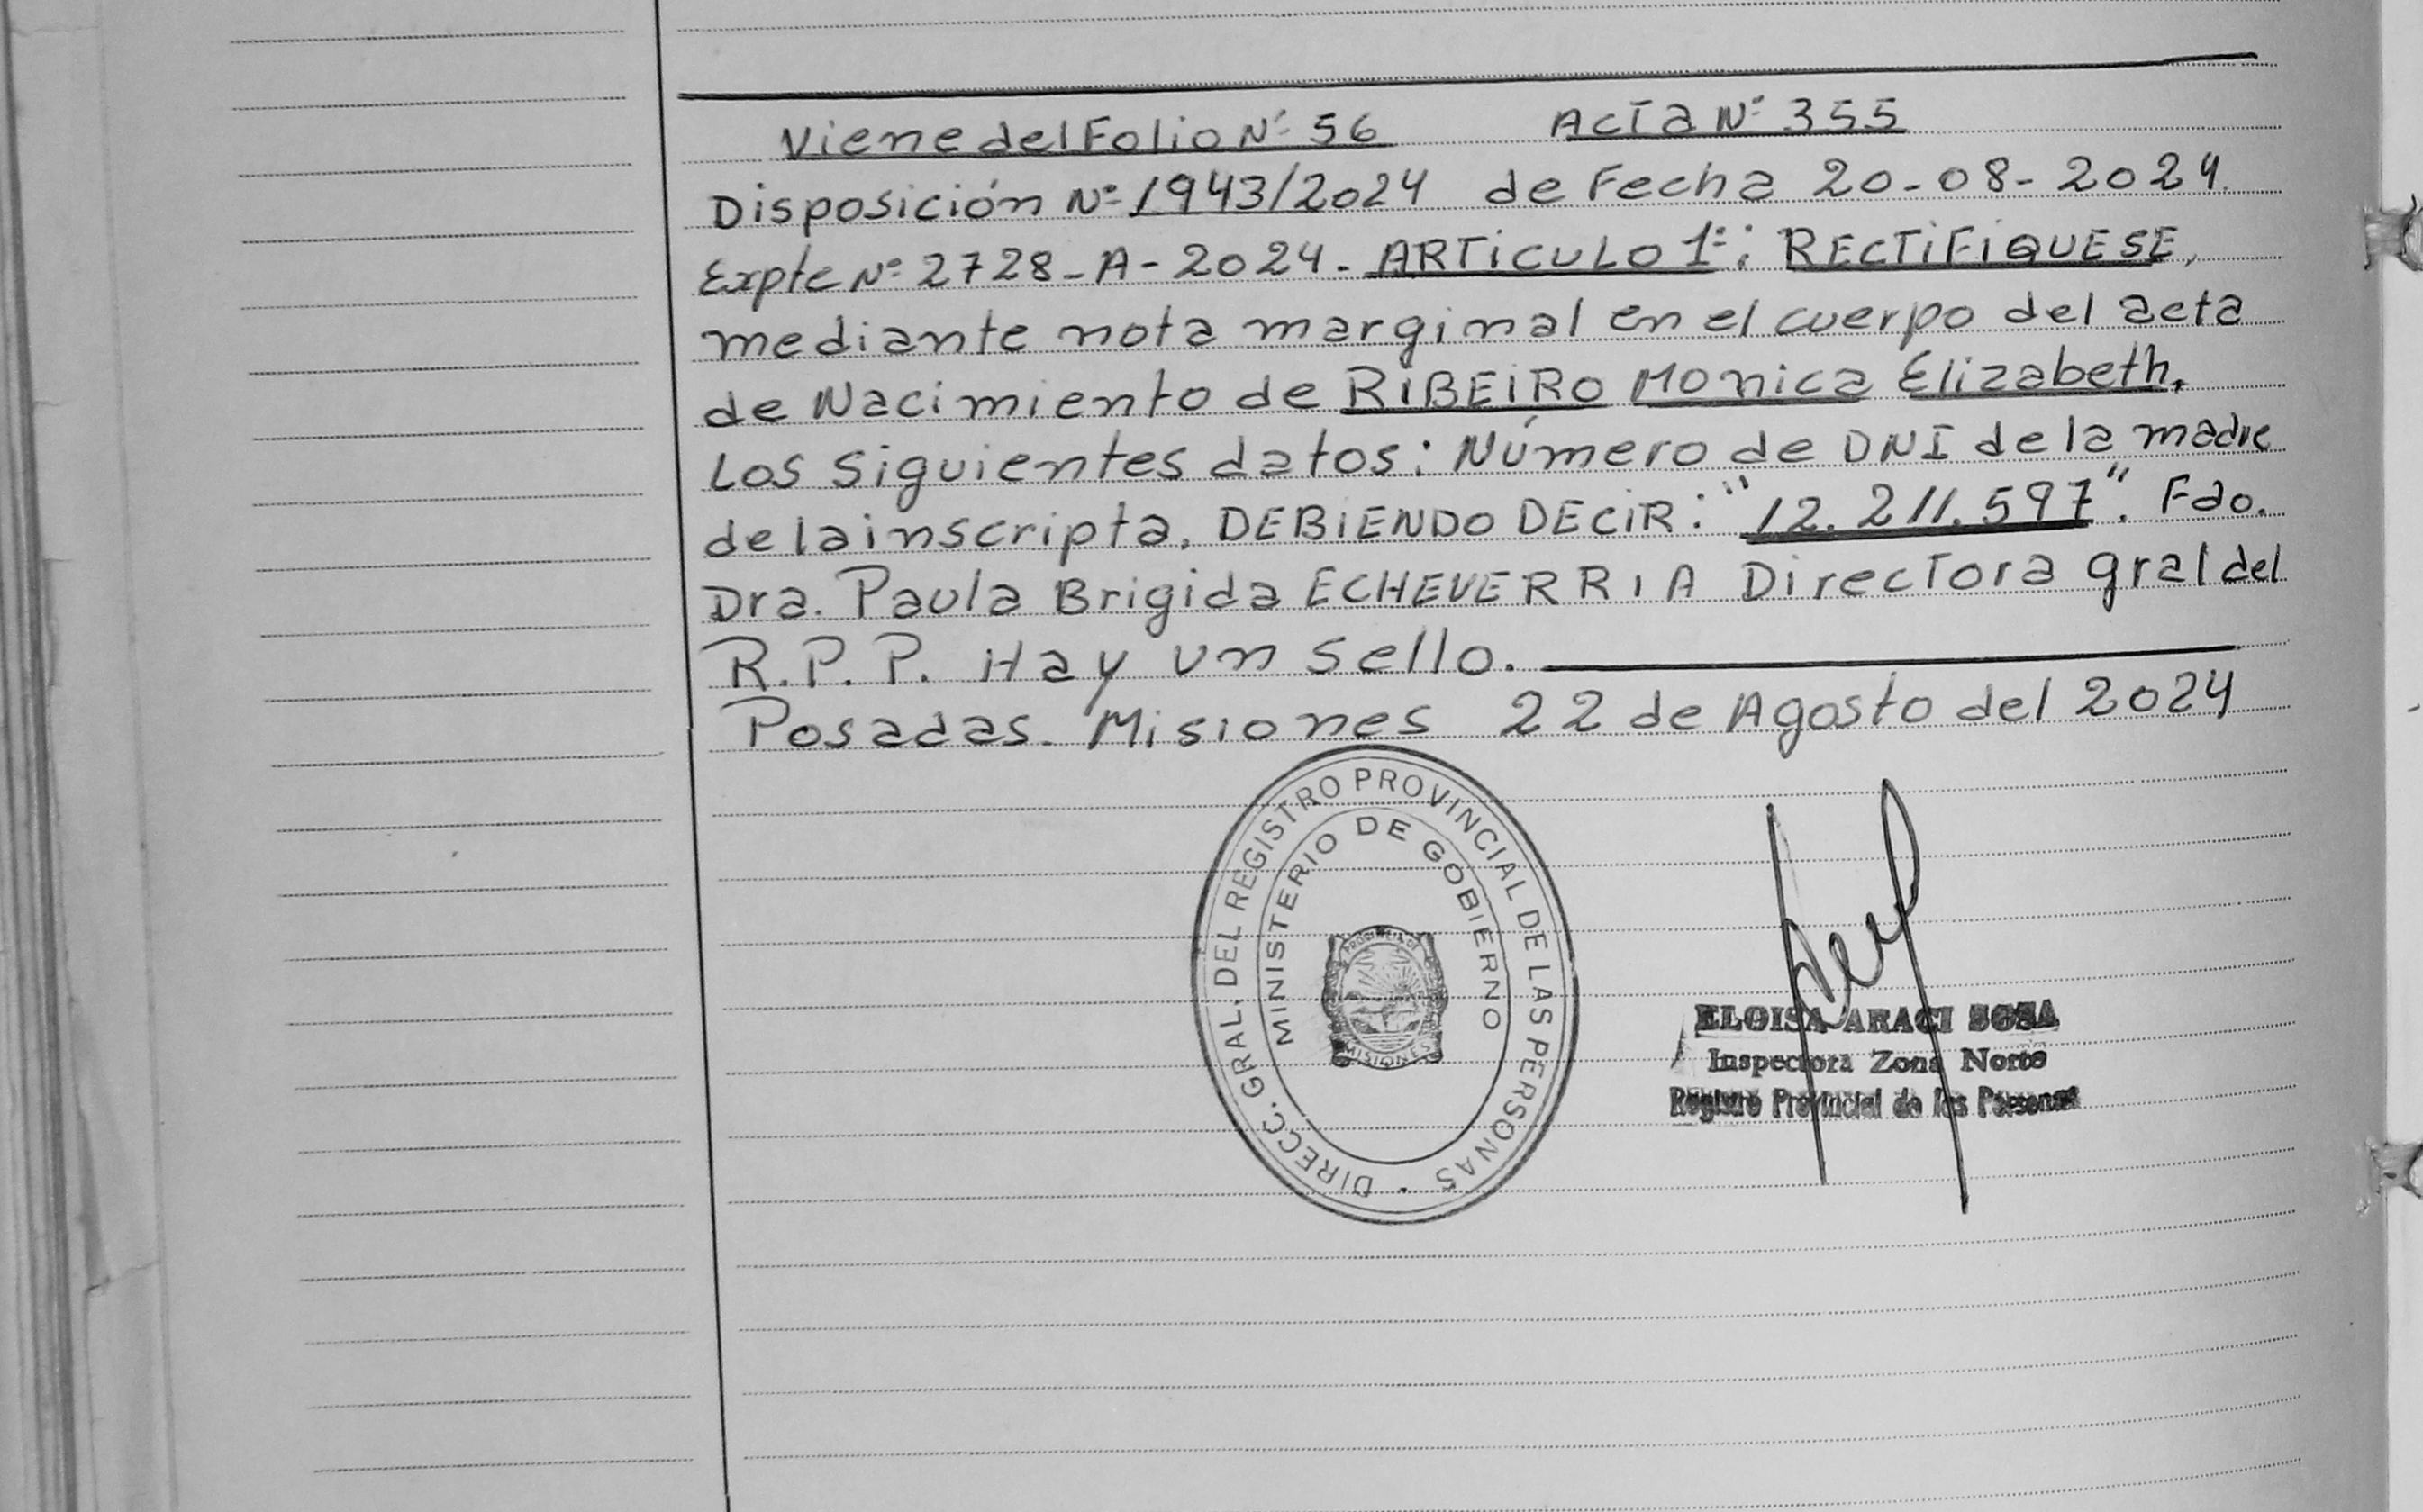 Viene del Folio Nº 56 Acta Nº 355
Disposición Nº 1943/2024 de Fecha 20-08-2024.
Expte Nº 2728-A-2024. ARTICULO 1º: RECTIFIQUESE,
mediante nota marginal en el cuerpo del acta
de Nacimiento de RIBEIRO Monica Elizabeth.
Los siguientes datos: Número de DNI de la madre
de la inscripta. DEBIENDO DECIR: "12.211.597". Fdo.
Dra. Paula Brigida ECHEVERRIA Directora gral del
R.P.P. Hay un sello.
Posadas. Misiones 22 de Agosto del 2024
DIRECC. GRAL. DEL REGISTRO PROVINCIAL DE LAS PERSONAS
MINISTERIO DE GOBIERNO
PROVINCIA DE
MISIONES
ELOISA ARACI SOSA
Inspectora Zona Norte
Registro Provincial de las Personas